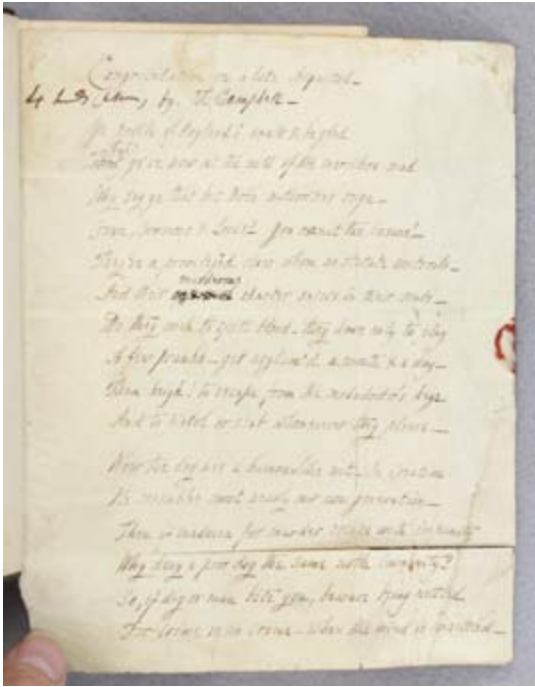 Congratulations on a late Acquittal_
by T. Campbell_
Ye people of England! exult & be glad
For ye're now at the will of the merciless mad
Why say ye that but three authorities reign_
Crown, Commons & Lords? You omit the insane!_
They're a privileged class whom no statute controuls_
And their murderous charter exists in their souls_
Do they wish to spill blood_ they have only to play
A few pranks_ get asylum'd a month & a day_
Then heigh! to escape from the mad-doctor's keys
And to pistol or stab whomsoever they please_
Now the dog has a human-like wit_ in creation
He resembles most nearly our own generation_
Then if madness for murder escape with impunity
Why deny a poor dog the same noble immunity?
So, if dog or man bite you, beware being nettled
For crime is no crime_ when the mind is unsettled_